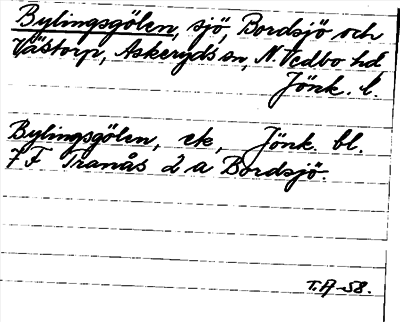 Bylingsgölen, sjö, Bordsjö och
Västorp, Askeryds sn, N. Vedbo hd
Jönk. l.
Bylingsgölen, ek, Jönk. bl.
7 F Tranås 2 a Bordsjö.
T.A-58.